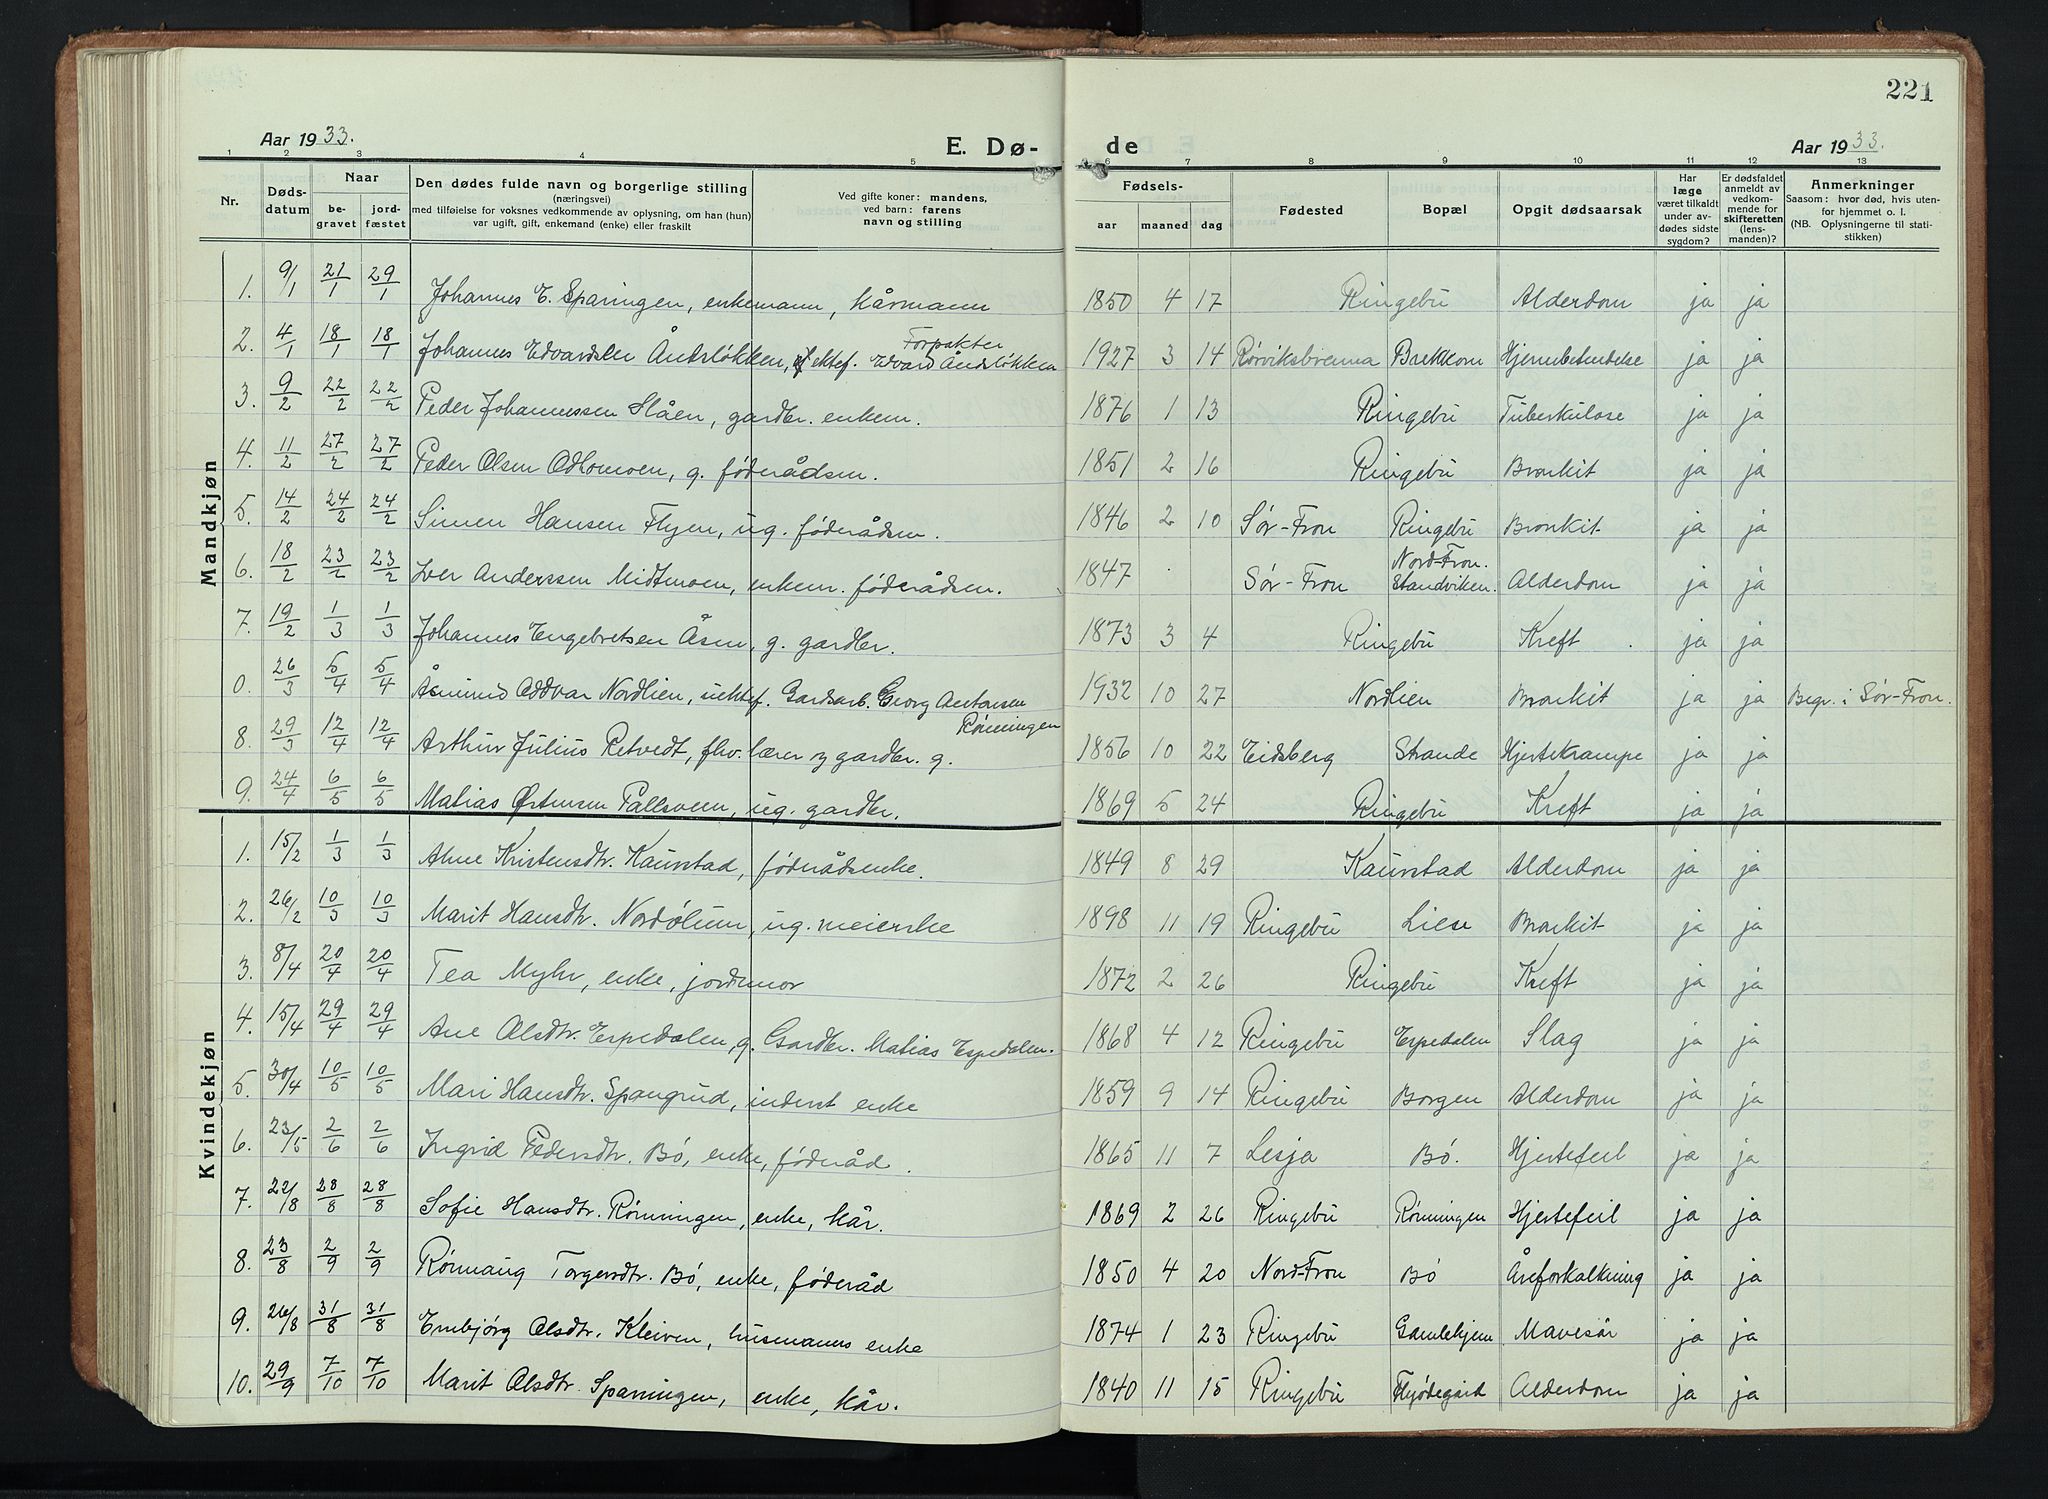 221
Aar 1933. E. Dø- de Aar 1933.
1 2 3 4 5 6 7 8 9 10 11 12 13
Nr. Døds-datum Naar be-gravet jord-fæstet Den dødes fulde navn og borgerlige stilling (næringsvei) med tilføielse for voksnes vedkommende av oplysning, om han (hun) var ugift, gift, enkemand (enke) eller fraskilt Ved gifte koner: mandens, ved barn: farens navn og stilling Fødsels- aar maaned dag Fødested Bopæl Opgit dødsaarsak Har læge været tilkaldt under av-dødes sidste sygdom? Er dødsfaldet anmeldt av vedkom-mende for skifteretten (lens-manden)? Anmerkninger Saasom: hvor død, hvis uten-for hjemmet o. l. (NB. Oplysningerne til stati-stikken)
Mandkjøn
1. 9/1 21/1 29/1 Johannes E. Sparingen, enkemann, kårmann 1850 4 17 Ringebu Alderdom ja ja
2. 4/1 18/1 18/1 Johannes Edvardsen Åndsløkken, ektef. Forpakter Edvard Åndsløkken 1927 3 14 Rørviksbrenna Brekkom Hjernebetendelse ja ja
3. 9/2 22/2 22/2 Peder Johannessen Slåen, gardbr. enkem. 1876 1 13 Ringebu Tuberkulose ja ja
4. 11/2 27/2 27/2 Peder Olsen Odlomoen, g. føderådsm. 1851 2 16 Ringebu Bronkit ja ja
5. 14/2 24/2 24/2 Simen Hansen Flyen, ug. føderådsm. 1846 2 10 Sør-Fron Ringebu Bronkit ja ja
6. 18/2 23/2 23/2 Iver Anderssen Midtmoen, enkem. føderådsm. 1847 Sør-Fron Nord-Fron. Standviken. Alderdom ja ja
7. 19/2 1/3 1/3 Johannes Engebretsen Åsen, g. gardbr. 1873 3 4 Ringebu Kreft ja ja
0. 26/3 5/4 5/4 Åsmund Oddvar Nordlien, uektef. Gardsarb. Georg Antonsen Rønningen 1932 10 27 Nordlien Bronkit ja ja Begr. i Sør-Fron.
8. 29/3 12/4 12/4 Arthur Julius Retvedt, fhv. lærer og gardbr. g. 1856 10 22 Eidsberg Strande Hjertekrampe ja ja
9. 24/4 6/5 6/5 Matias Østensen Pallsveen, ug. gardbr. 1869 5 24 Ringebu Kreft ja ja
Kvindekjøn
1. 15/2 1/3 1/3 Ane Kristensdtr. Kaurstad, føderådsenke. 1849 8 29 Kaurstad Alderdom ja ja
2. 26/2 10/3 10/3 Marit Hansdtr. Nordølum, ug. meierske 1898 11 19 Ringebu Liese Bronkit ja ja
3. 8/4 20/4 20/4 Tea Myhr, enke, jordmor 1872 2 26 Ringebu Kreft ja ja
4. 15/4 29/4 29/4 Ane Olsdtr. Espedalen, g. Gardbr. Matias Espedalen. 1868 4 12 Ringebu Espedalen Slag ja ja
5. 30/4 10/5 10/5 Mari Hansdtr. Spangrud, inderst enke 1859 9 14 Ringebu Borgen Alderdom ja ja
6. 23/5 2/6 2/6 Ingrid Pedersdtr. Bø, enke, føderåd. 1865 11 7 Lesja Bø. Hjertefeil ja ja
7. 22/8 28/8 28/8 Sofie Hansdtr. Rønningen, enke, kår. 1869 2 26 Ringebu Rønningen Hjertefeil ja ja
8. 23/8 2/9 2/9 Rønnaug Torgersdtr. Bø, enke, føderåd 1850 4 20 Nord-Fron Bø Åreforkalkning ja ja
9. 26/8 31/8 31/8 Embjørg Olsdtr. Kleiven, husmanns enke 1874 1 23 Ringebu Gamlehjem Mavesår ja ja
10. 29/9 7/10 7/10 Marit Olsdtr. Sparningen, enke, kår. 1840 11 15 Ringebu Flyødegård Alderdom ja ja